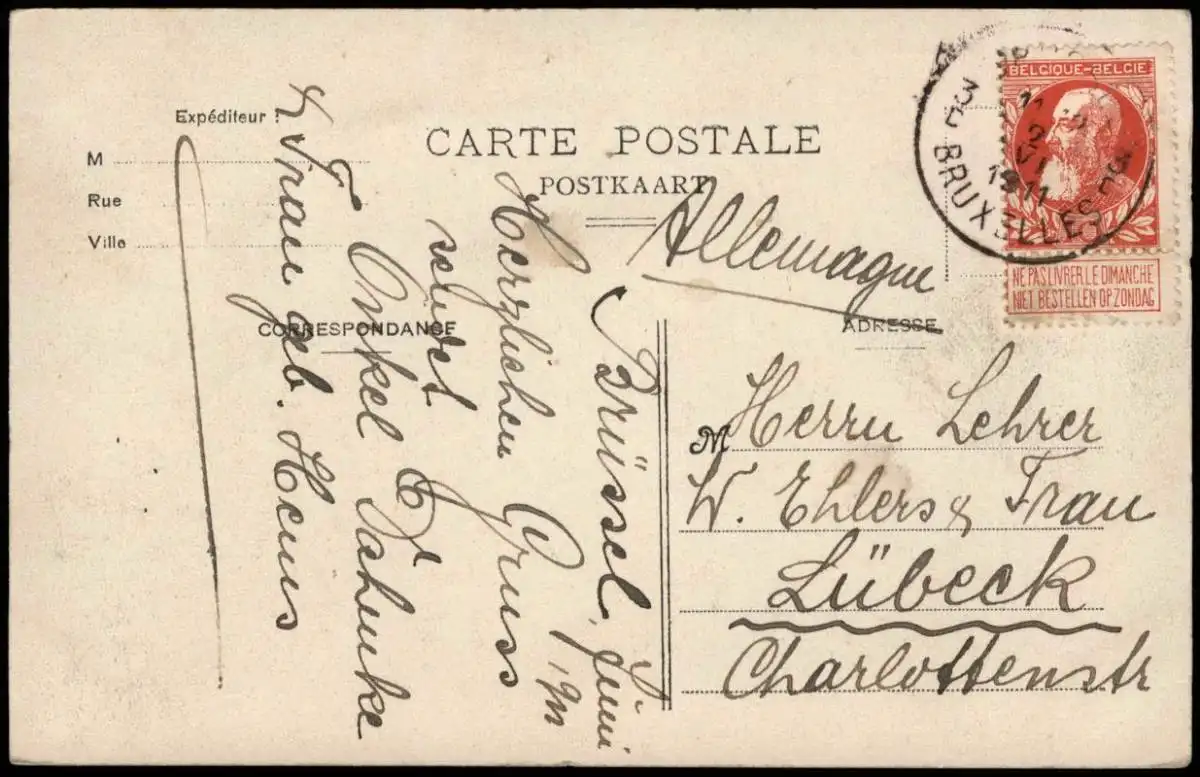 CARTE POSTALE
POSTKAART
Expéditeur :
M
Rue
Ville
CORRESPONDANCE
ADRESSE
BELGIQUE-BELGIE
NE PAS LIVRER LE DIMANCHE
NIET BESTELLEN OP ZONDAG
BRUXELLES
1911
Allemagne
M Herrn Lehrer
W. Ehlers & Frau
Lübeck
Charlottenstr
Brüssel, Juni
Herzlichen Gruss
sendet
Onkel
& Frau geb. Heuss